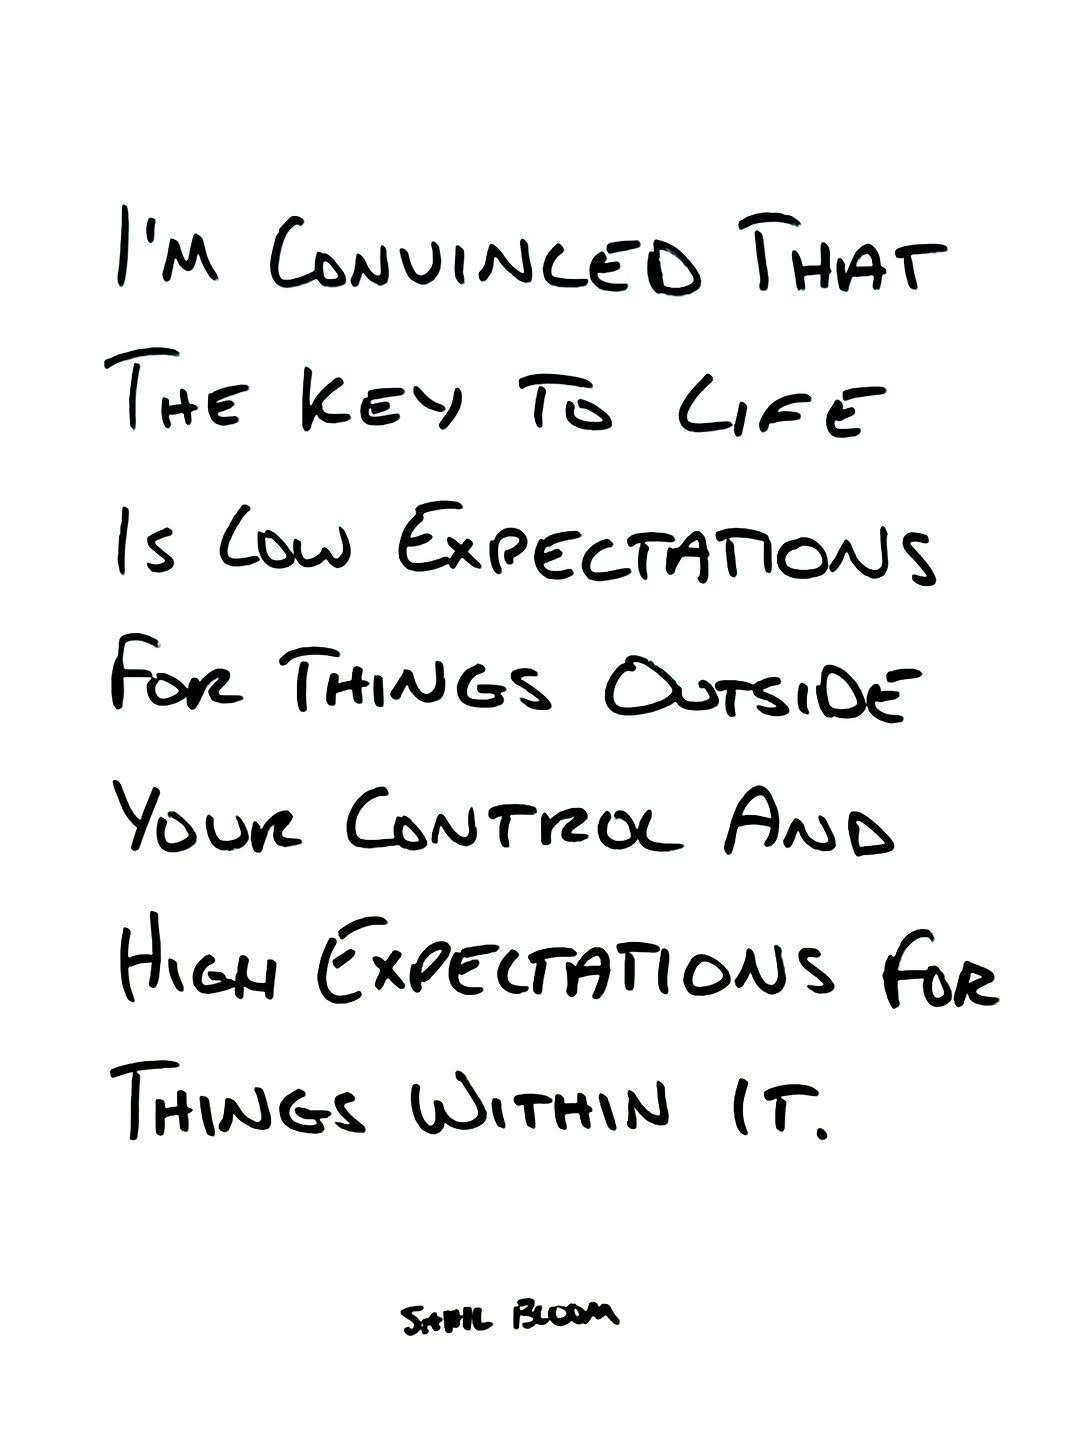 I'm Convinced That
The Key To Life
Is Low Expectations
For Things Outside
Your Control And
High Expectations For
Things Within It.
Sahil Bloom